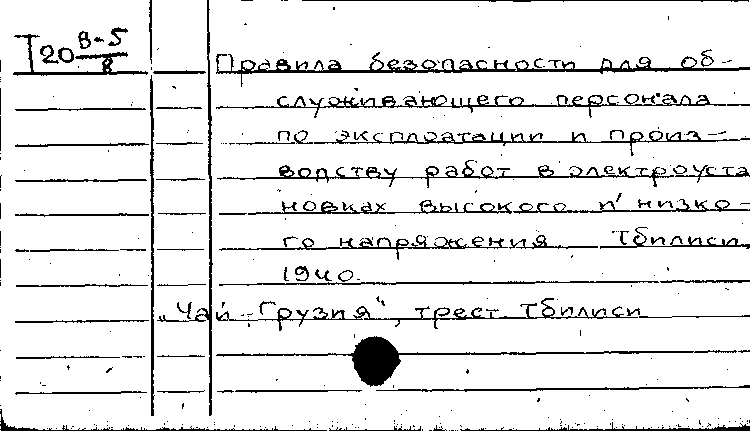 Т20 В-5/8
Правила безопасности для об-
служивающего персонала
по эксплоатации и произ-
водству работ в электроуста
новках высокого и низко-
го напряжения Тбилиси,
1940.
„Чай-Грузия", трест. Тбилиси